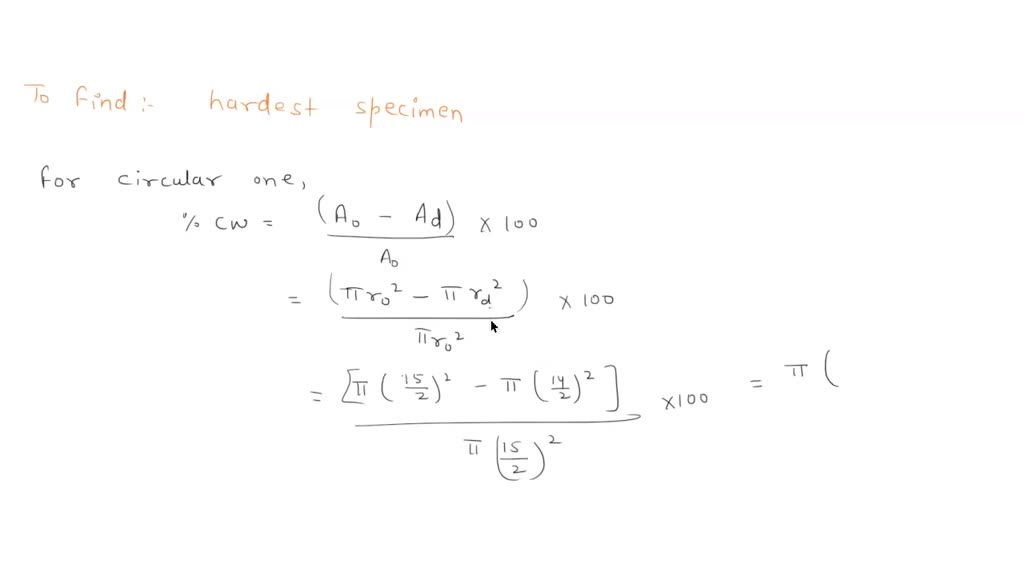 To find :- hardest specimen
for circular one,
% CW = (A₀ - Ad) / A₀ × 100
= (πr₀² - πrd²) / πr₀² × 100
= [π(15/2)² - π(14/2)²] / π(15/2)² ×100 = π(